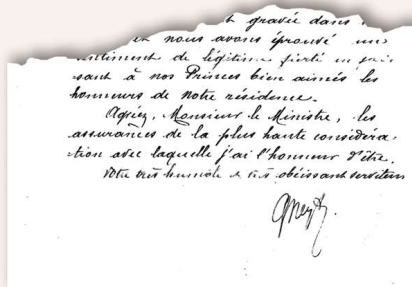 gravée dans
nous avons éprouvé un
sentiment de légitime fierté en fai-
sant à nos Princes bien aimés les
honneurs de notre résidence.
Agréez, Monsieur le Ministre, les
assurances de la plus haute considéra-
tion avec laquelle j'ai l'honneur d'être,
Votre très humble et très obéissant serviteur